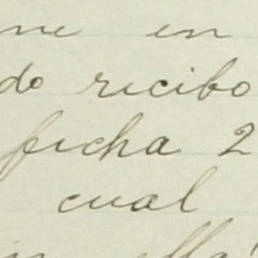 en
do recibo
fecha 2
cual